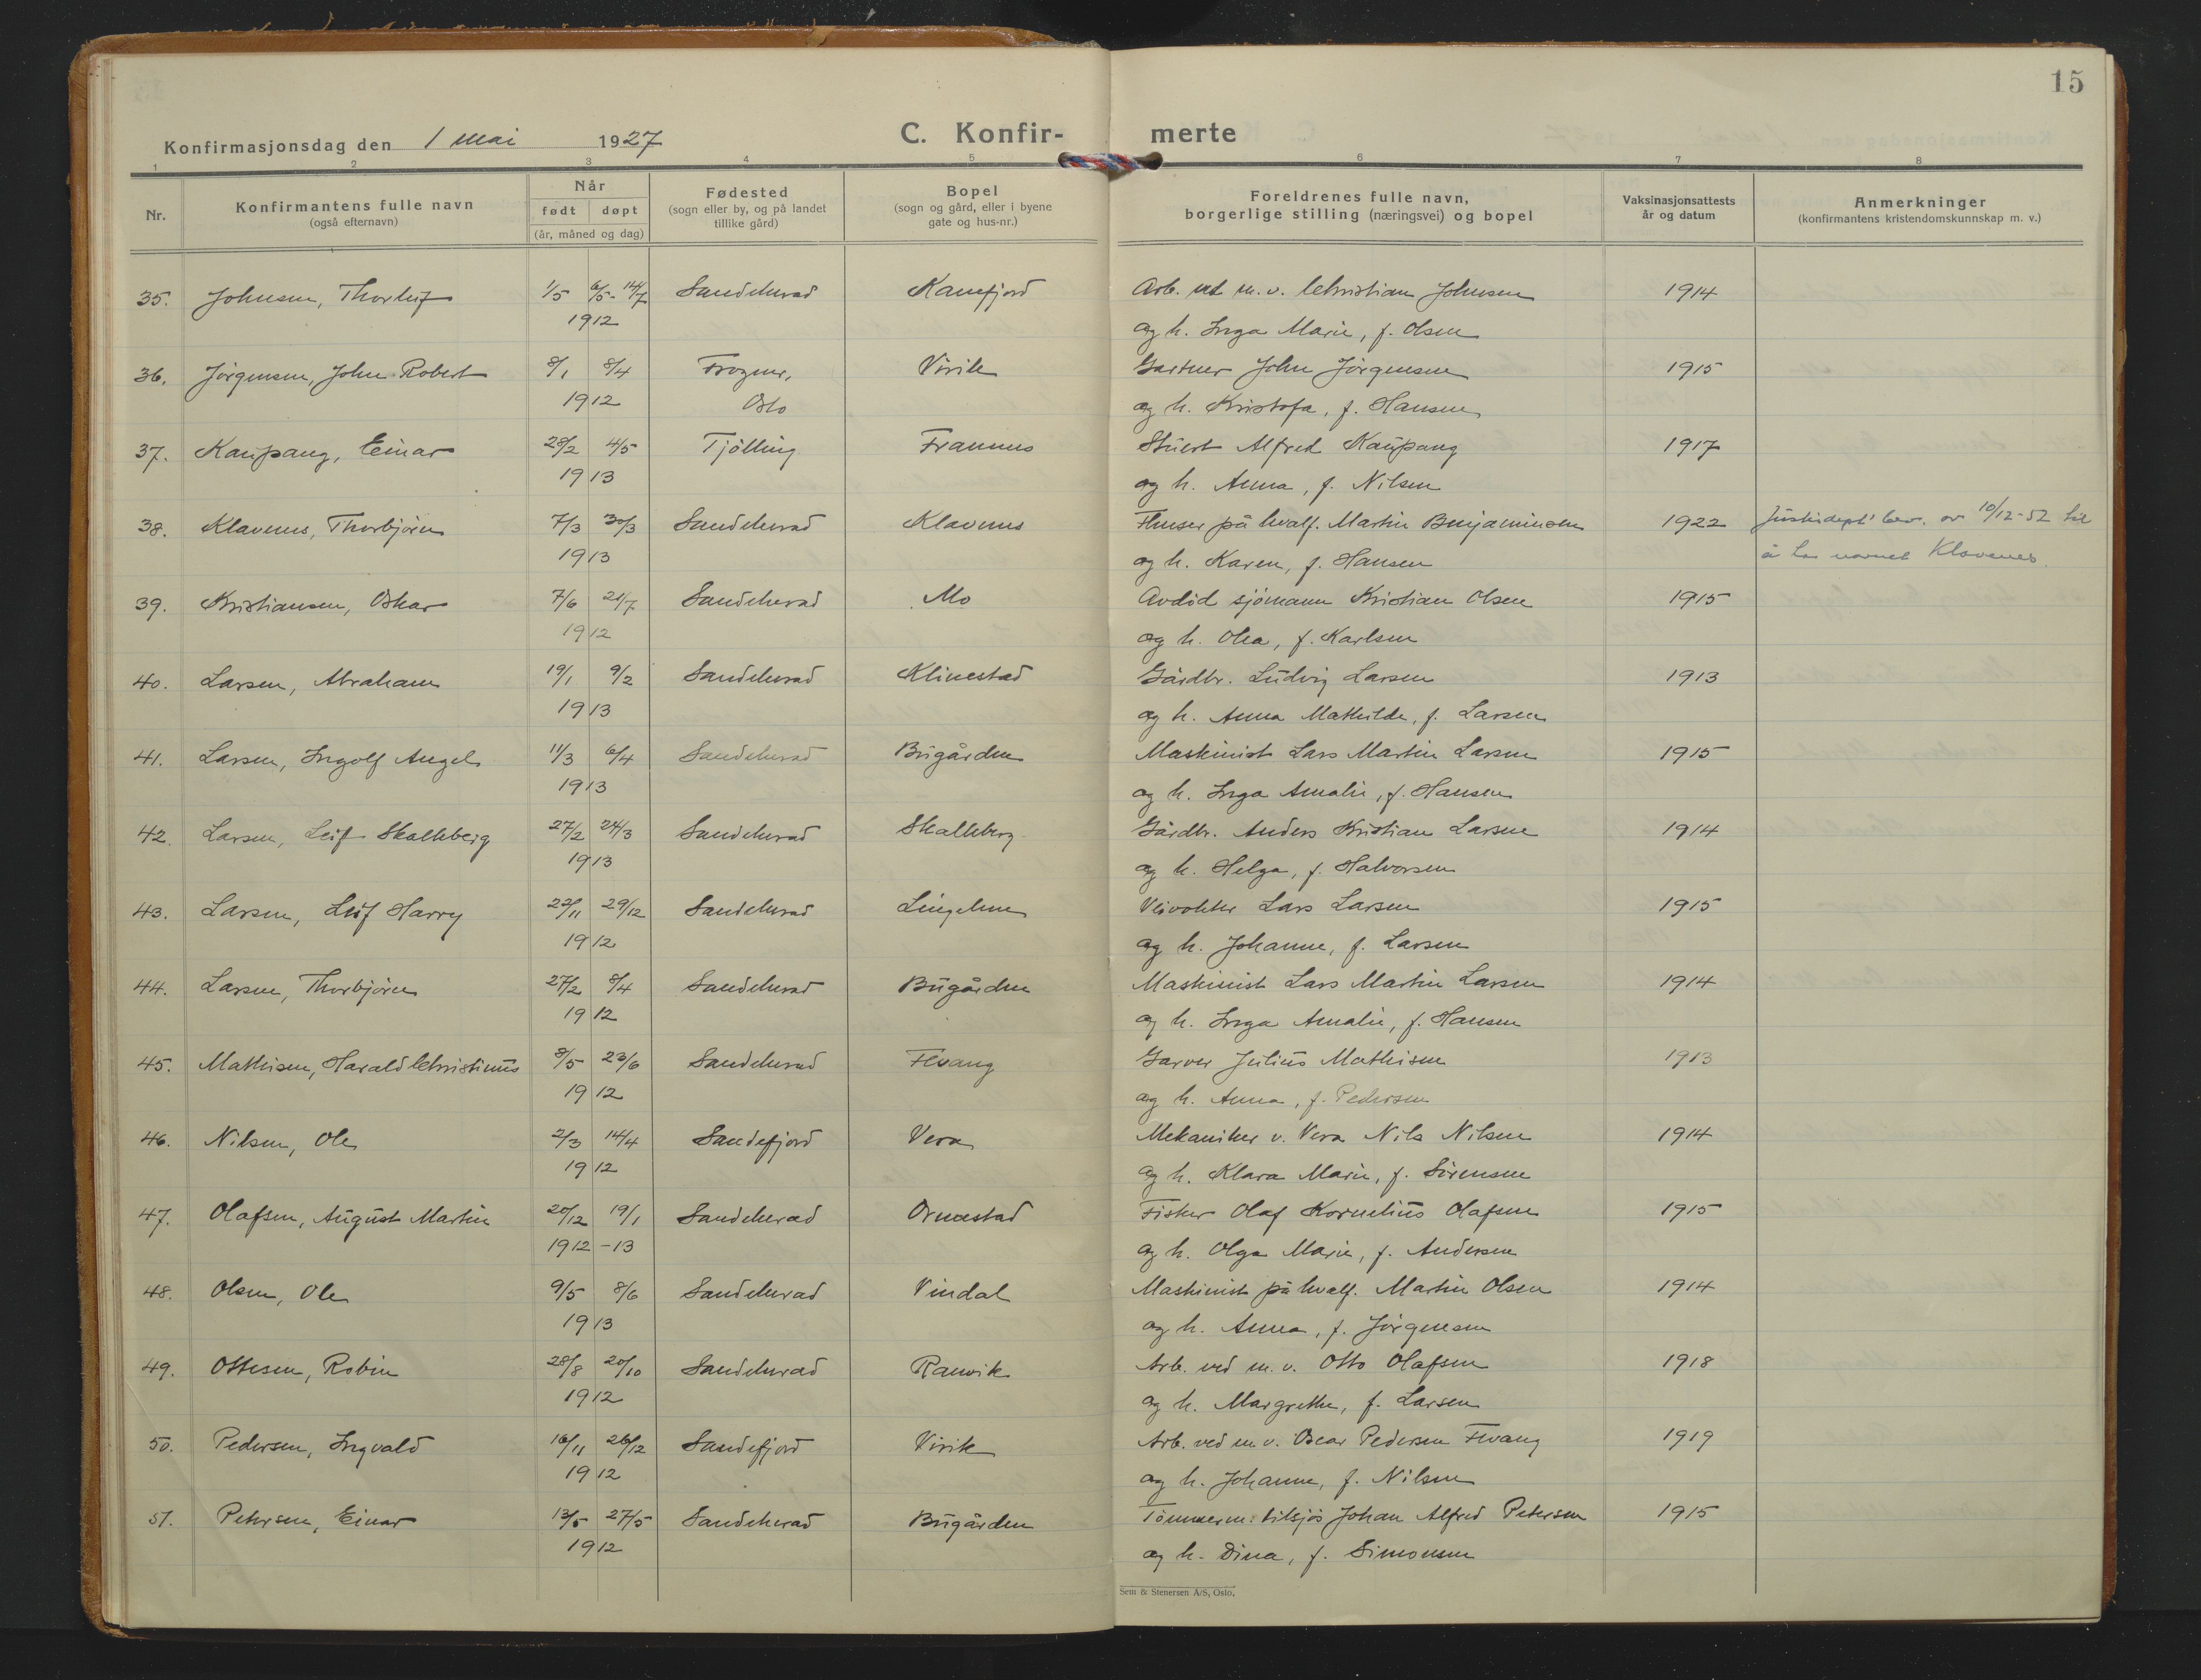 15
Konfirmasjonsdag den 1 mai 1927
C. Konfir- merte
1 2 3 4 5 6 7 8
Nr.
Konfirmantens fulle navn
(også efternavn)
Når
født døpt
(år, måned og dag)
Fødested
(sogn eller by, og på landet
tillike gård)
Bopel
(sogn og gård, eller i byene
gate og hus-nr.)
Foreldrenes fulle navn,
borgerlige stilling (næringsvei) og bopel
Vaksinasjonsattests
år og datum
Anmerkninger
(konfirmantens kristendomskunnskap m. v.)
35. Johnsen, Thorleif 1/5 6/5-14/7 Sandeherad Kamfjord Arb. ved m. v. Christian Johnsen 1914
1912 og h. Inga Marie, f. Olsen
36. Jørgensen, John Robert 8/1 8/4 Frogner, Virik Gartner John Jörgensen 1915
1912 Oslo og h. Kristofa, f. Hansen
37. Kaupang, Einar 28/2 4/5 Tjölling Framnes Stuert Alfred Kaupang 1917
1913 og h. Anna, f. Nilsen
38. Klavenes, Thorbjörn 7/3 30/3 Sandeherad Klavenes Flenser på hvalf. Martin Benjaminsen 1922 Justisdept' bev. av 10/12-52 til
1913 og h. Karen, f. Hansen å ta navnet Klavenes
39. Kristiansen, Oskar 7/6 21/7 Sandeherad Mo Avdöd sjömann Kristian Olsen 1915
1912 og h. Olea, f. Karlsen
40. Larsen, Abraham 19/1 9/2 Sandeherad Klinestad Gårdbr. Ludvig Larsen 1913
1913 og h. Anna Mathilde, f. Larsen
41. Larsen, Ingolf Angel 11/3 6/4 Sandeherad Bugården Maskinist Lars Martin Larsen 1915
1913 og h. Inga Amalie, f. Hansen
42. Larsen, Leif Skalleberg 27/2 24/3 Sandeherad Skalleberg Gårdbr. Anders Kristian Larsen 1914
1913 og h. Helga, f. Halvorsen
43. Larsen, Leif Harry 22/11 29/12 Sandeherad Lingelem Veivokter Lars Larsen 1915
1912 og h. Johanne, f. Larsen
44. Larsen, Thorbjörn 27/2 8/4 Sandeherad Bugården Maskinist Lars Martin Larsen 1914
1912 og h. Inga Amalie, f. Hansen
45. Mathisen, Harald Christinus 8/5 23/6 Sandeherad Fevang Garver Julius Mathisen 1913
1912 og h. Anna, f. Pedersen
46. Nilsen, Ole 2/3 14/4 Sandefjord Vera Mekaniker v. Vera Nils Nilsen 1914
1912 og h. Klara Marie, f. Sörensen
47. Olafsen, August Martin 20/12 19/1 Sandeherad Ormestad Fisker Olaf Kornelius Olafsen 1915
1912-13 og h. Olga Marie, f. Andersen
48. Olsen, Ole 9/5 8/6 Sandeherad Vindal Maskinist på hvalf. Martin Olsen 1914
1913 og h. Anna, f. Jörgensen
49. Ottesen, Robin 28/8 20/10 Sandeherad Ranvik Arb. ved m. v. Otto Olafsen 1918
1912 og h. Margrethe, f. Larsen
50. Pedersen, Ingvald 16/11 26/12 Sandefjord Virik Arb. ved m. v. Oscar Pedersen Fevang 1919
1912 og h. Johanne, f. Nilsen
51. Petersen, Einar 13/5 27/5 Sandeherad Bugården Tömmerm. tilsjös Johan Alfred Petersen 1915
1912 og h. Dina, f. Simonsen
Sem & Stenersen A/S, Oslo.